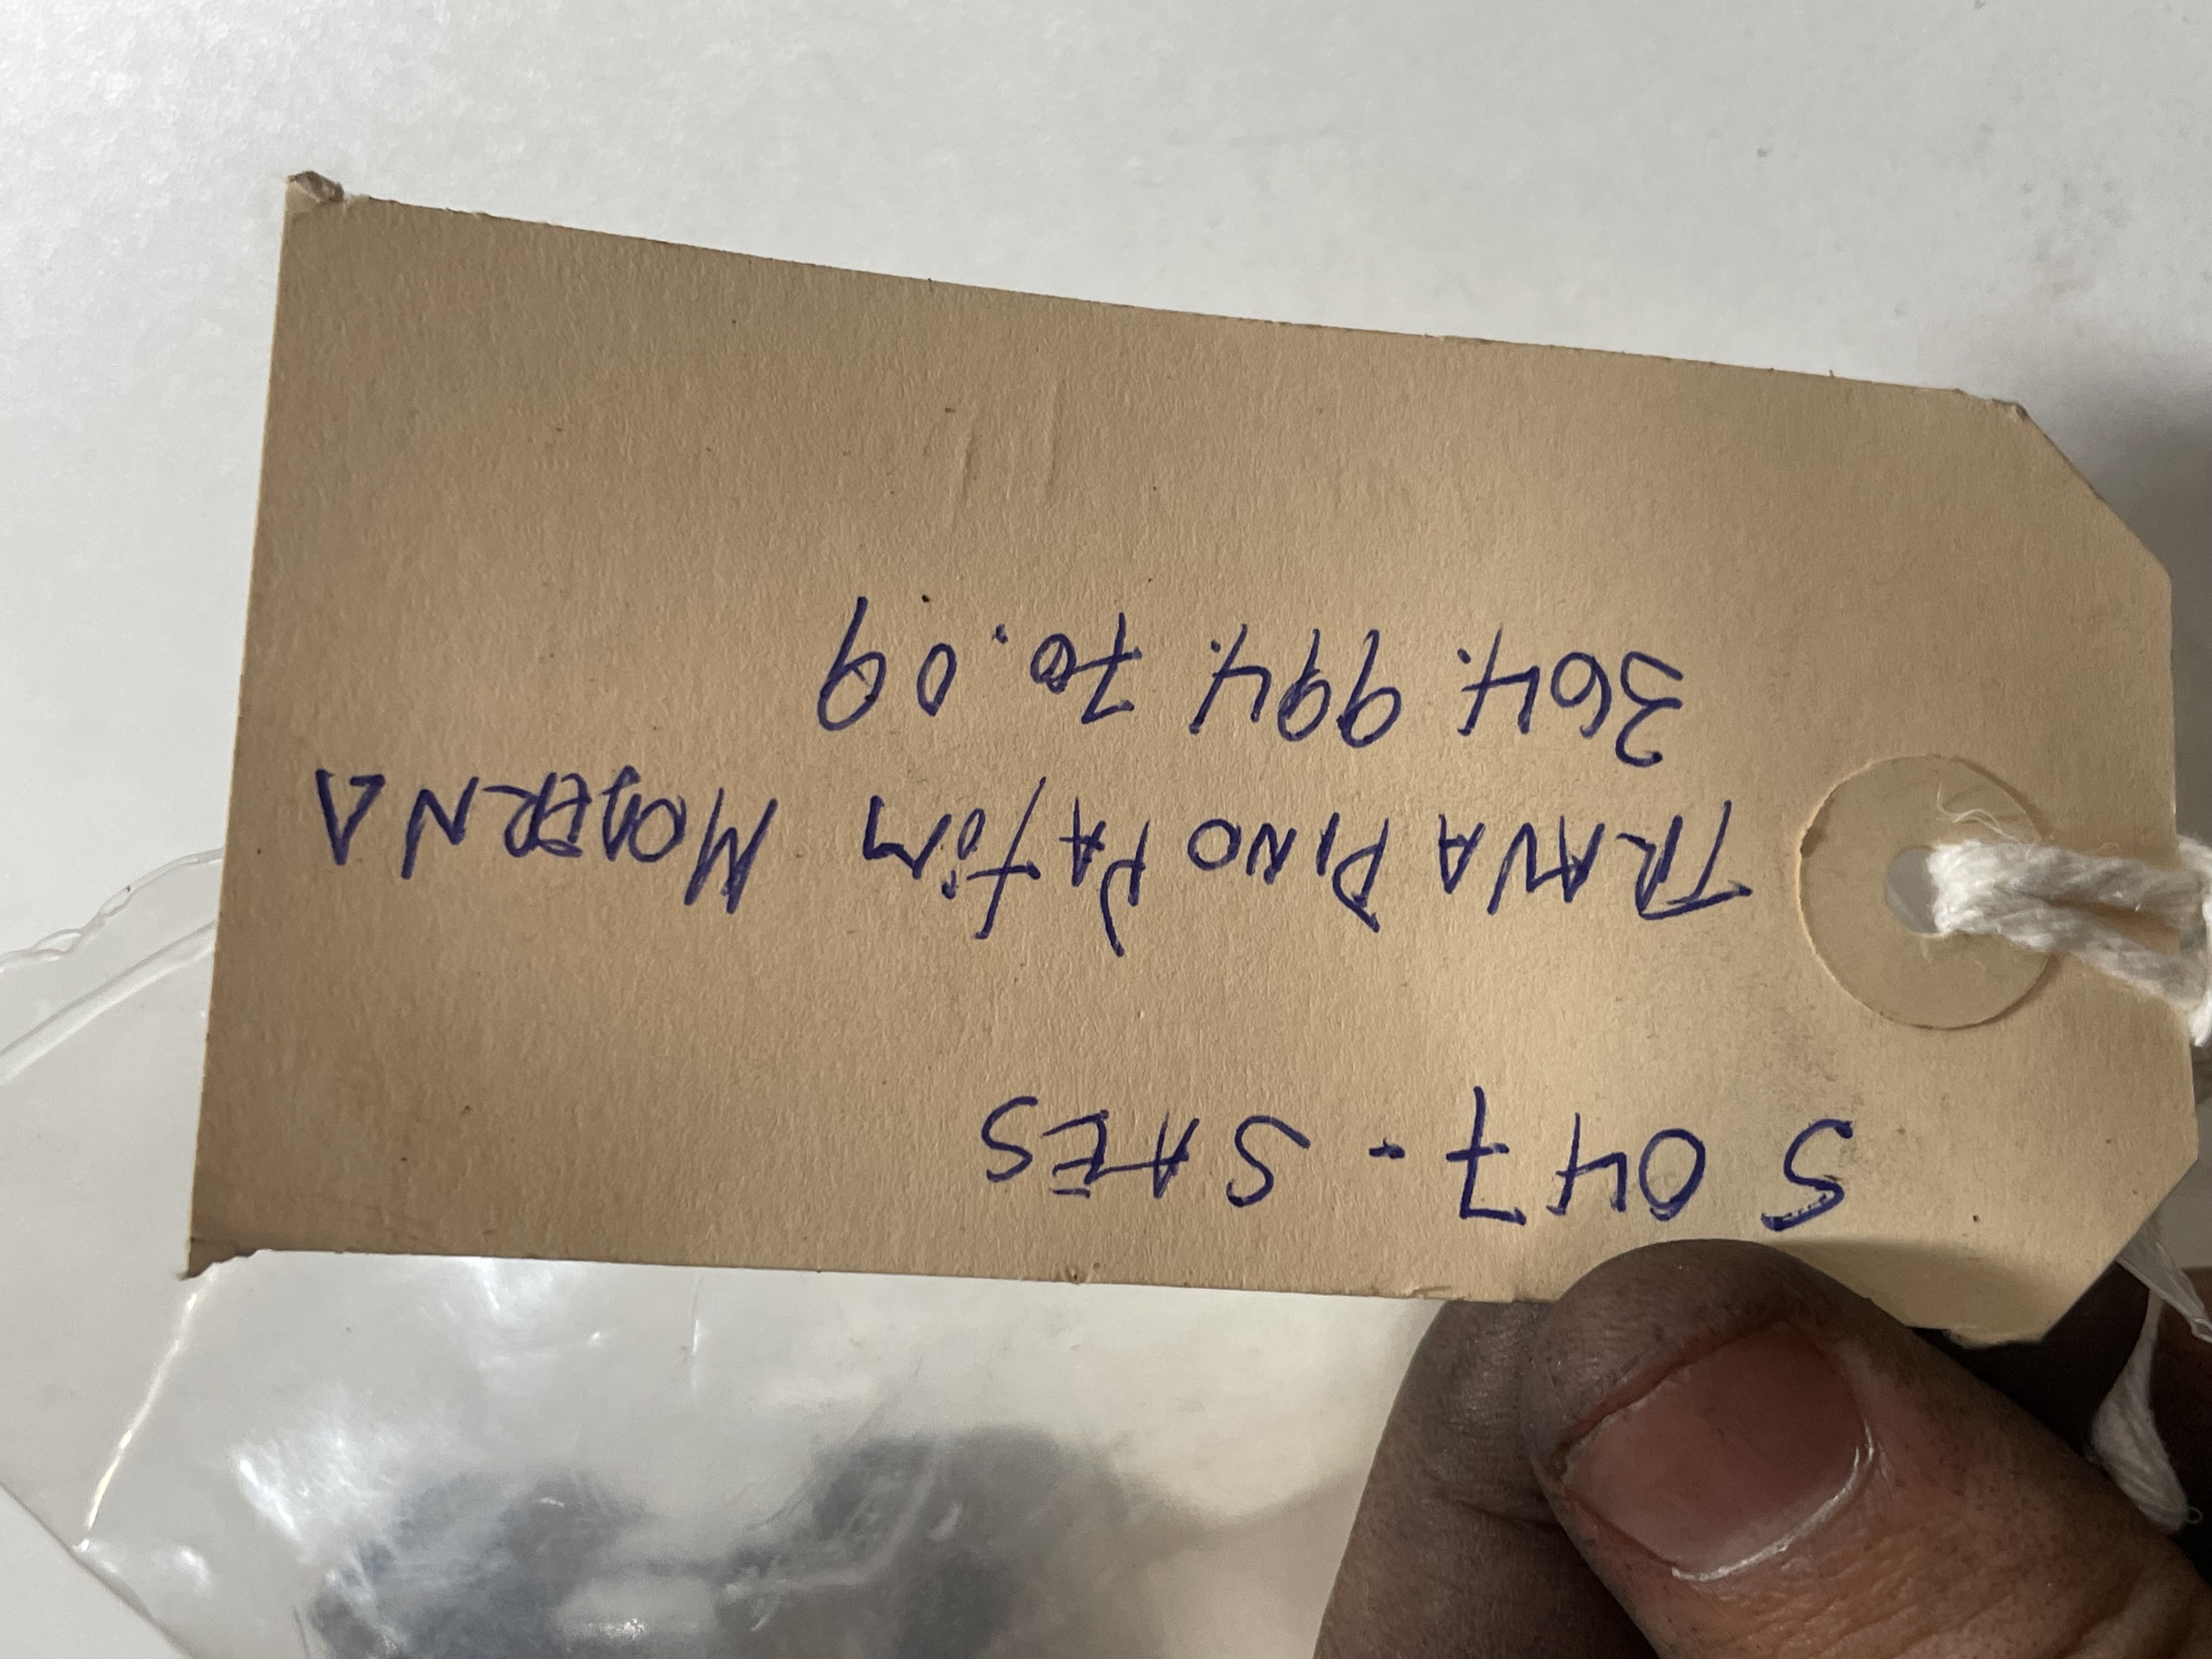 S 047 - SAES
TRAVA PINO PATiM MODERNA
364.994.70.09